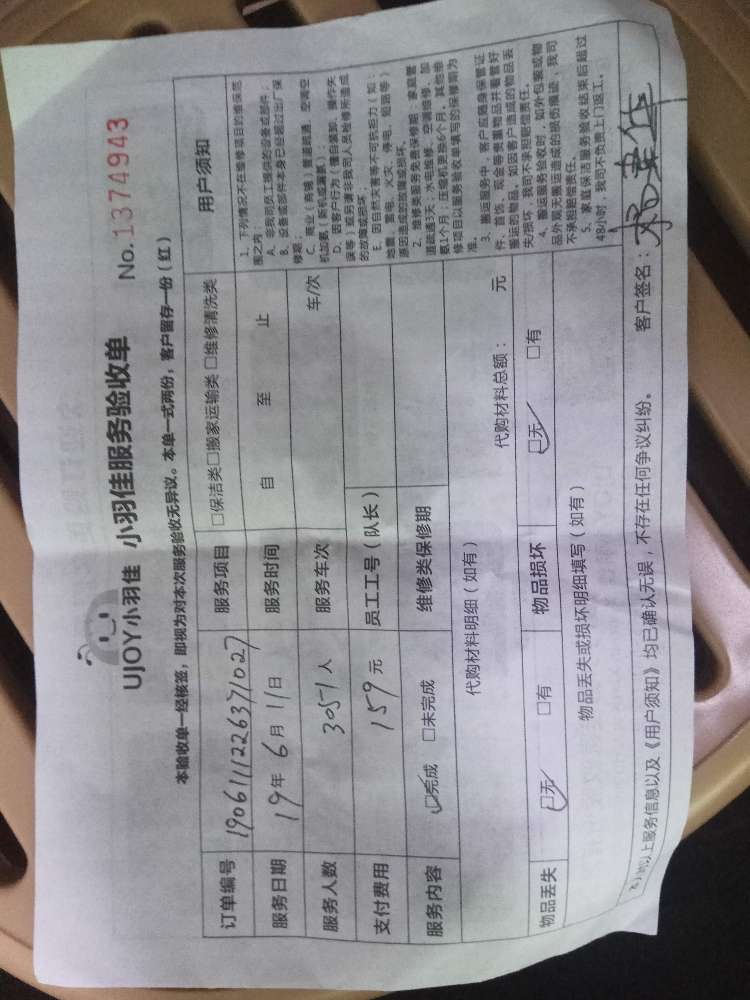 UJOY小羽佳 小羽佳服务验收单 No.1374943
本验收单一经核签，即视为对本次服务验收无异议。本单一式两份，客户留存一份（红）
订单编号 1906111226371027 服务项目 □保洁类□搬家运输类 □维修清洗类 用户须知
服务日期 19年6月11日 服务时间 自 至 止
服务人数 3057人 服务车次 车/次
支付费用 159元 员工工号（队长）
服务内容 ☑完成 □未完成 维修类保修期
代购材料明细（如有） 代购材料总额： 元
物品丢失 ☑无 □有 物品损坏 ☑无 □有
物品丢失或损坏明细填写（如有）
1、下列情况不在维修项目的维保范
围之内
A、非我司员工提供的设备或部件；
B、设备或部件本身已经超过出厂保
修期；
C、商业（商铺）管道疏通、空调空
机加氨（新机或漏氨）；
D、因客户行为（擅自装卸、操作失
误等）或另请非我司人员检修所造成
的故障或损坏；
E、因自然灾害等不可抗拒力（如：
地震、雷电、火灾、停电、短路等）
原因造成的故障或损坏。
2、维修类服务免费保修期：家庭管
道疏通3天；水电维修、空调维修、加
氨1个月；压缩机更换6个月，其他维
修项目以服务验收单填写的保修期为
准。
3、搬运服务中，客户应随身保管证
件、首饰、现金等贵重物品并看管好
搬运的物品。如因客户造成的物品丢
失/损坏，我司不承担赔偿责任。
4、搬运服务验收时，如外包装或物
品外观无搬运造成的损伤痕迹，我司
不承担赔偿责任。
5、家庭保洁服务验收结束后超过
48小时，我司不负责上门返工。
以上服务信息以及《用户须知》均已确认无误，不存在任何争议纠纷。 客户签名：